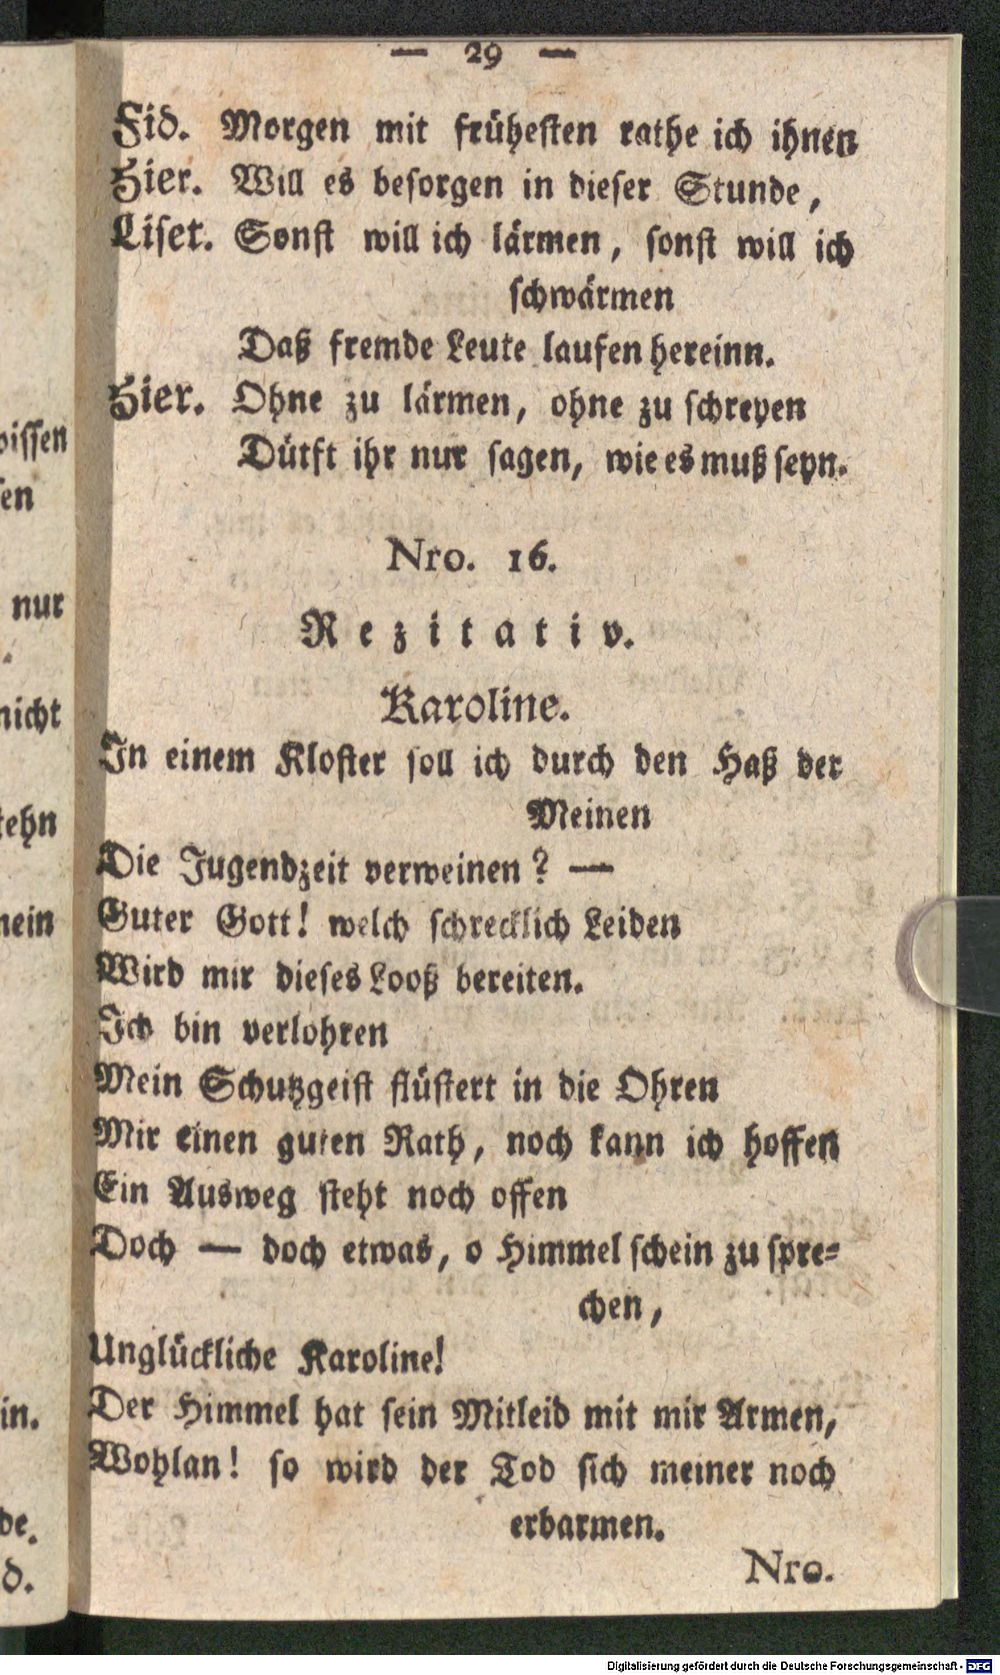 — 29 —
Fid. Morgen mit frühesten rathe ich ihnen
Hier. Will es besorgen in dieser Stunde,
Liset. Sonst will ich lärmen, sonst will ich
schwärmen
Daß fremde Leute laufen hereinn.
Hier. Ohne zu lärmen, ohne zu schreyen
Dütft ihr nur sagen, wie es muß seyn.
Nro. 16.
Rezitativ.
Karoline.
In einem Kloster soll ich durch den Haß der
Meinen
Die Jugendzeit verweinen? —
Guter Gott! welch schrecklich Leiden
Wird mir dieses Looß bereiten.
Ich bin verlohren
Mein Schutzgeist flüstert in die Ohren
Mir einen guten Rath, noch kann ich hoffen
Ein Ausweg steht noch offen
Doch — doch etwas, o Himmel schein zu spre-
chen,
Unglückliche Karoline!
Der Himmel hat sein Mitleid mit mir Armen,
Wohlan! so wird der Tod sich meiner noch
erbarmen.
Nro.
wissen
nur
nicht
in.
de.
d.
Digitalisierung gefördert durch die Deutsche Forschungsgemeinschaft - DFG